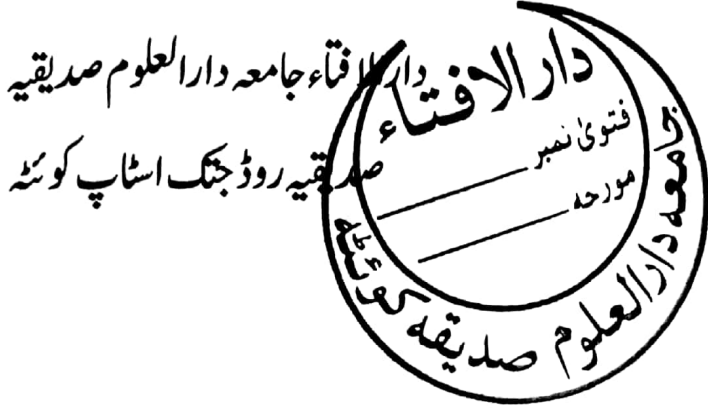 دارالافتاء جامعہ دارالعلوم صدیقیہ
صدیقیہ روڈ جتک اسٹاپ کوئٹہ
دارالافتاء
فتویٰ نمبر
مورحہ
جامعہ دارالعلوم صدیقہ کوئٹہ